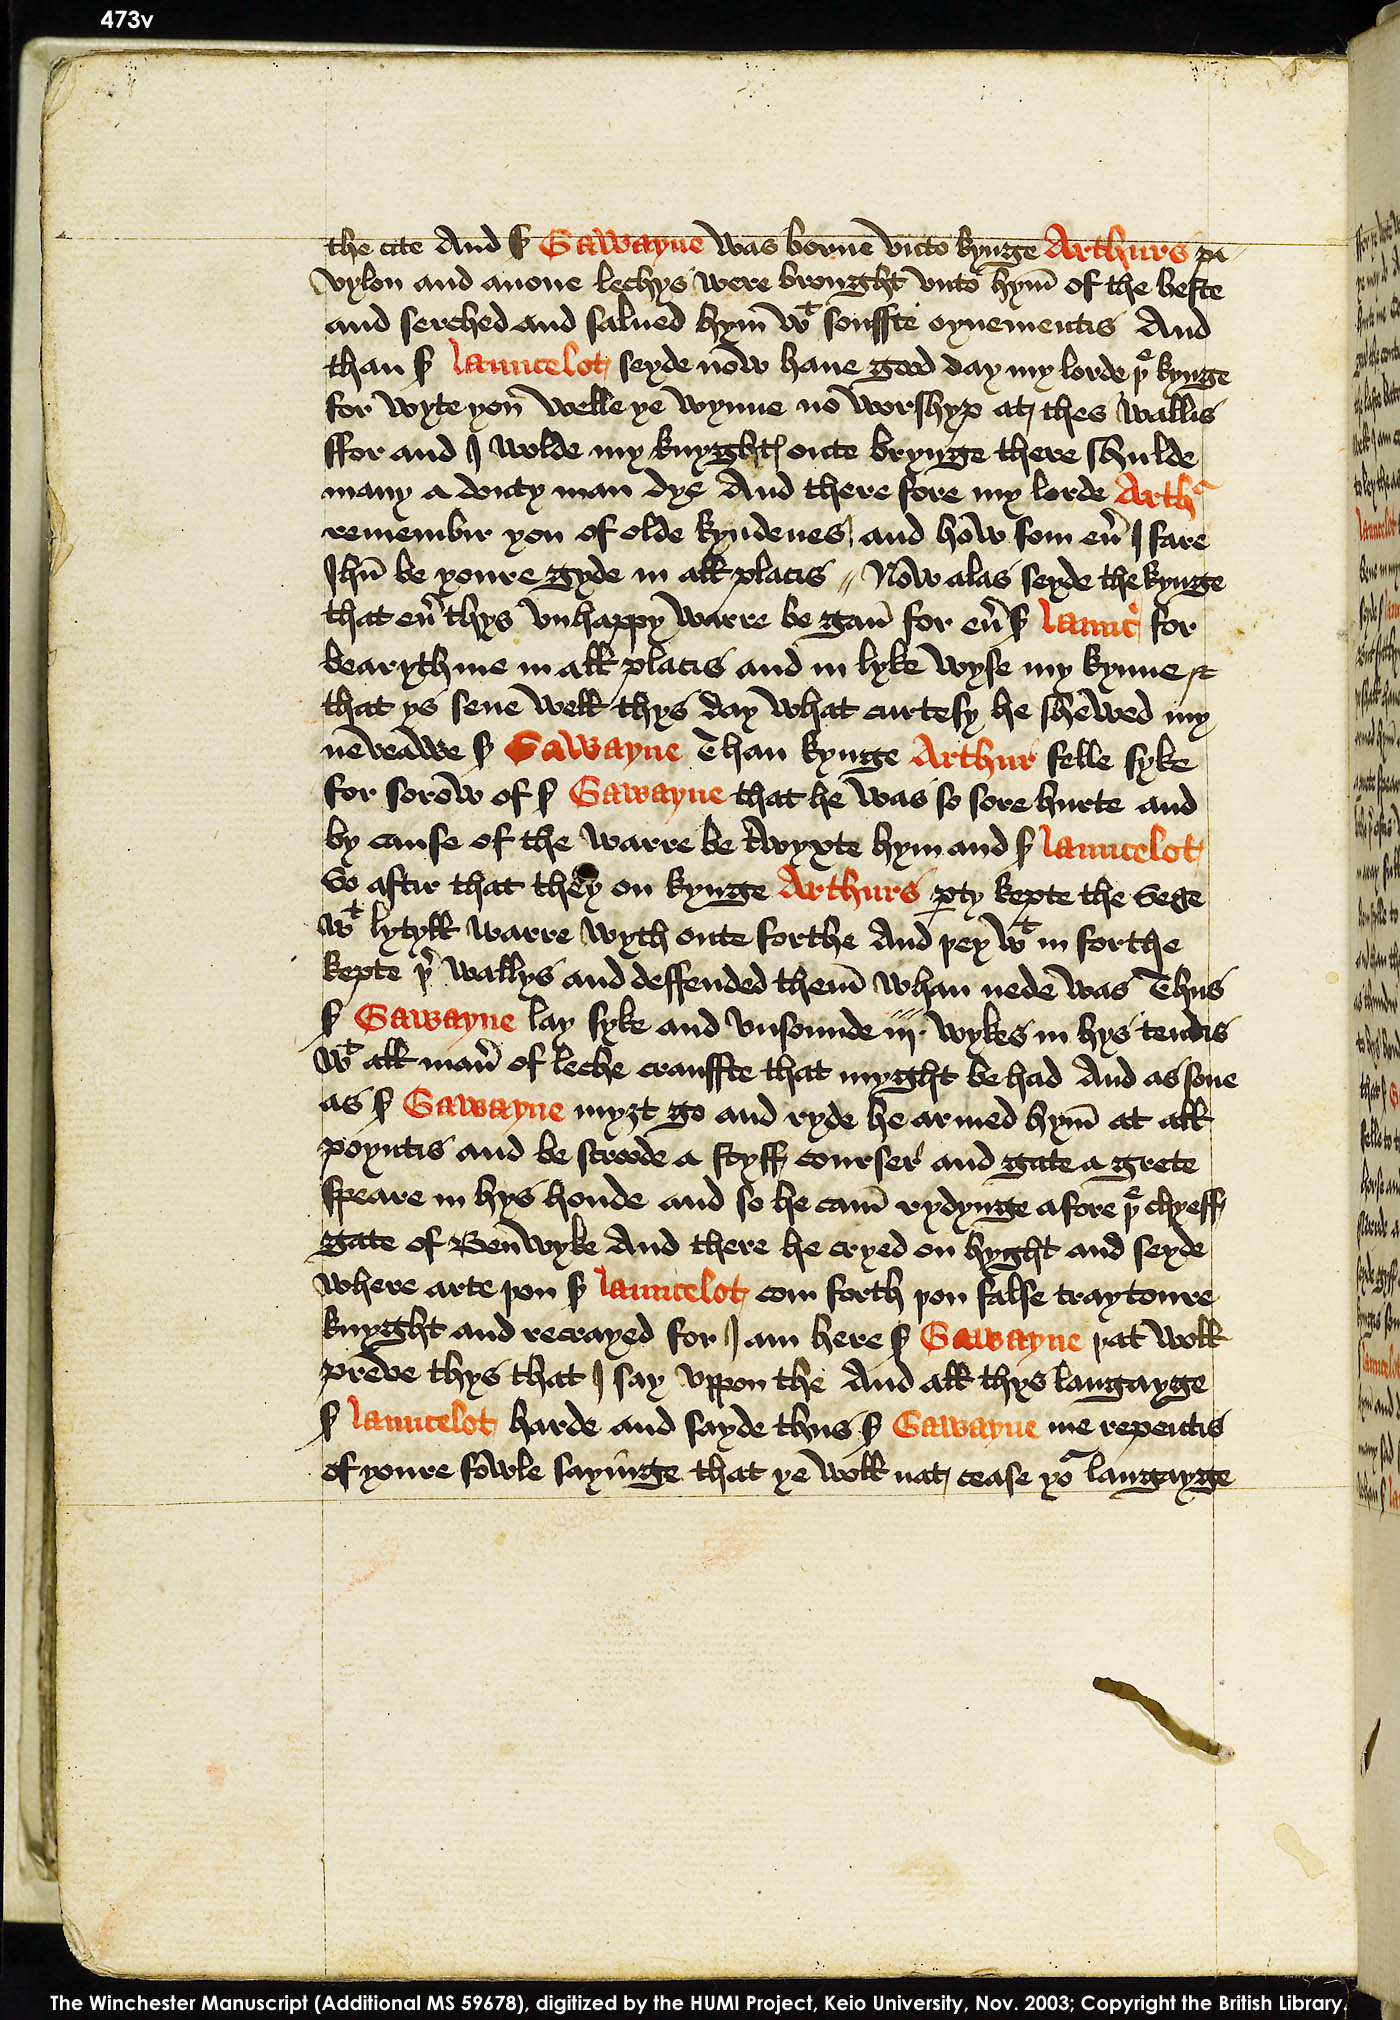 473v
the cite And ẜ Gawayne was borne vnto kynge Arthurs pa
vylon and anone lechys were brought vnto hym̄ of the beste
and serched and salued hym̄ wᵗ souffte oynementis And
than ẜ Launcelot seyde now haue good day my lorde þᵉ kynge
for wyte you welle ye wynne no worshyp at thes wallis
ffor and I wolde my knyghtꝭ oute brynge there shulde
many a douty man dye And there fore my lorde Arthᵘʳ
remembir you of olde kyndenes and how som eu̾ I fare
Jhū be youre gyde in all placis // Now alas seyde the kynge
that eu̾ thys vnhappy warre be gan̄ for eu̾ ẜ Launc̾ for
bearyth me in all placis and in lyke wyse my kynne &
that ys sene well thys day what curtesy he shewed my
neveawe ẜ Gawayne Than kynge Arthur felle syke
for sorow of ẜ Gawayne that he was so sore hurte and
by cause of the warre be twyxte hym and ẜ Launcelot
So aftir that they on kynge Arthurs ꝑty kepte the sege
wᵗ lytyll warre wyth oute forthe And þey wᵗ in forthe
kepte þᵉ wallys and deffended them̄ whan nede was Thus
ẜ Gawayne lay syke and vnsounde iij. wykes in hys tentis
wᵗ all man̾ of leche crauffte that myght be had And as sone
as ẜ Gawayne myȝt go and ryde he armed hym̄ at all
poyntis and be stroode a styff courser and gate a grete
speare in hys honde and so he cam̄ rydynge afore þᵉ chyeff
gate of Benwyke And there he cryed on hyght and seyde
where arte þou ẜ Launcelot com forth þou false traytoure
knyght and recrayed for I am here ẜ Gawayne þat woll
preve thys that I say vppon the And all thys langayge
ẜ Launcelot harde and sayde thus ẜ Gawayne me repentis
of youre fowle sayinge that ye woll nat cease yoʳ langayge
The Winchester Manuscript (Additional MS 59678), digitized by the HUMI Project, Keio University, Nov. 2003; Copyright the British Library.